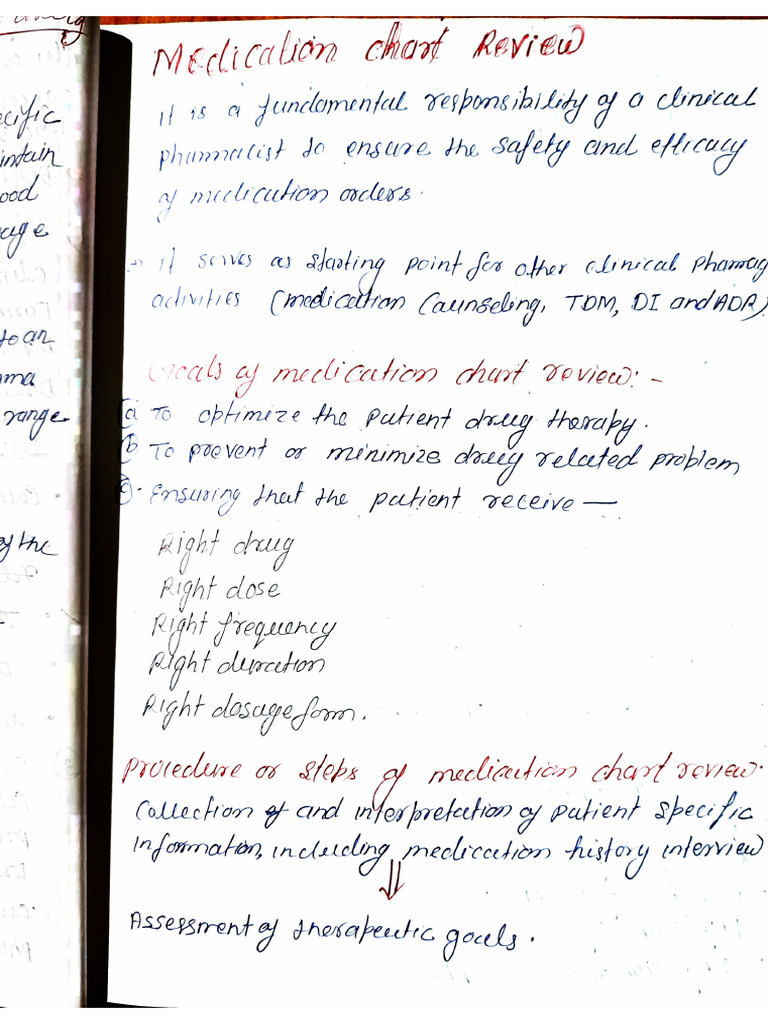 ecific
intain
ood
age
to an
ma
range
of the
Medication chart Review
it is a fundamental responsibility of a clinical
pharmacist to ensure the safety and efficacy
of medication orders.
it serves as starting point for other clinical pharmac
activities (medication Counseling, TDM, DI and ADR).
Goals of medication chart review:-
(a) To optimize the patient drug therapy.
(b) To prevent or minimize drug related problem
(c). Ensuring that the patient receive —
Right drug
Right dose
Right frequency
Right duration
Right dosage form.
Procedure or steps of medication chart review.
Collection of and interpretation of patient specific
information, including medication history interview
⇓
Assessment of therapeutic goals.